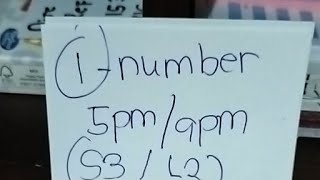 1-number
5pm/9pm
(53/42)